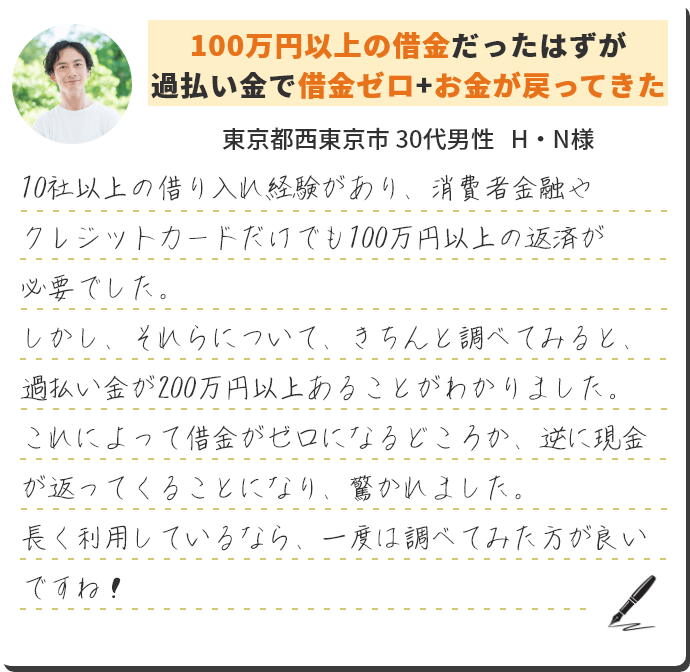 100万円以上の借金だったはずが
過払い金で借金ゼロ+お金が戻ってきた
東京都西東京市 30代男性 H・N様
10社以上の借り入れ経験があり、消費者金融や
クレジットカードだけでも100万円以上の返済が
必要でした。
しかし、それらについて、きちんと調べてみると、
過払い金が200万円以上あることがわかりました。
これによって借金がゼロになるどころか、逆に現金
が返ってくることになり、驚かれました。
長く利用しているなら、一度は調べてみた方が良い
ですね!